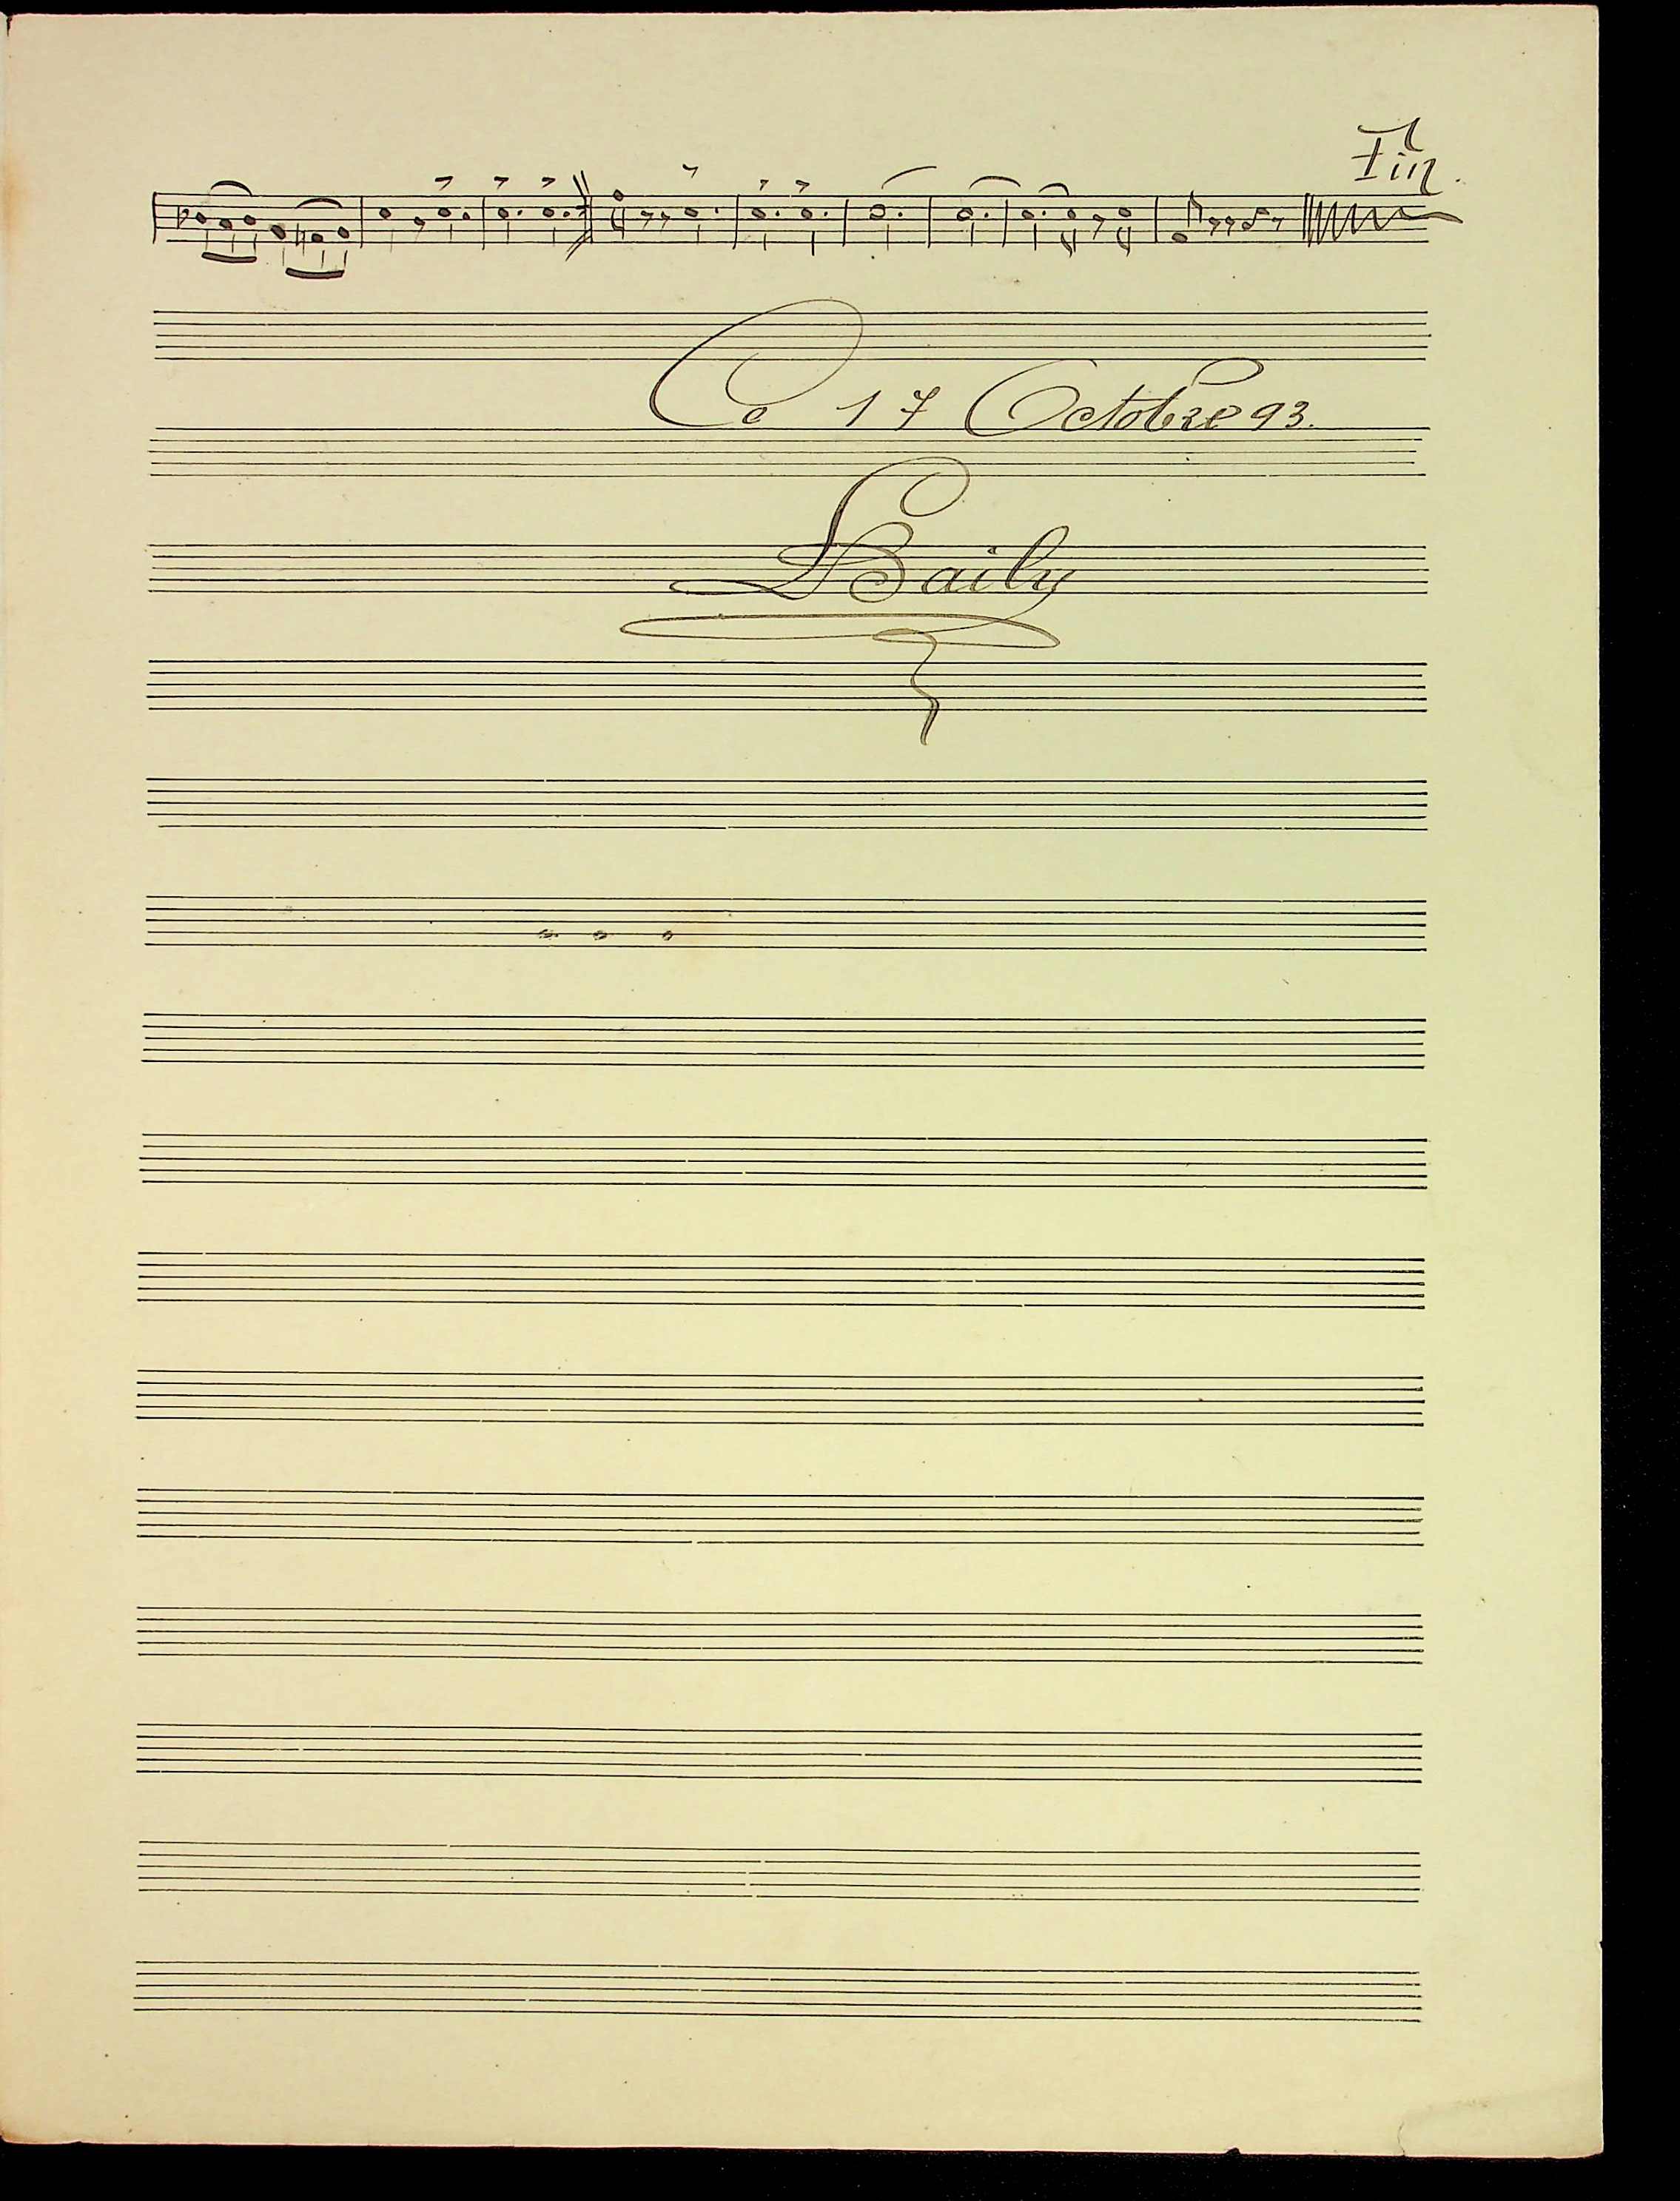 Fin.
Ce 17 Octobre 93.
LBaily